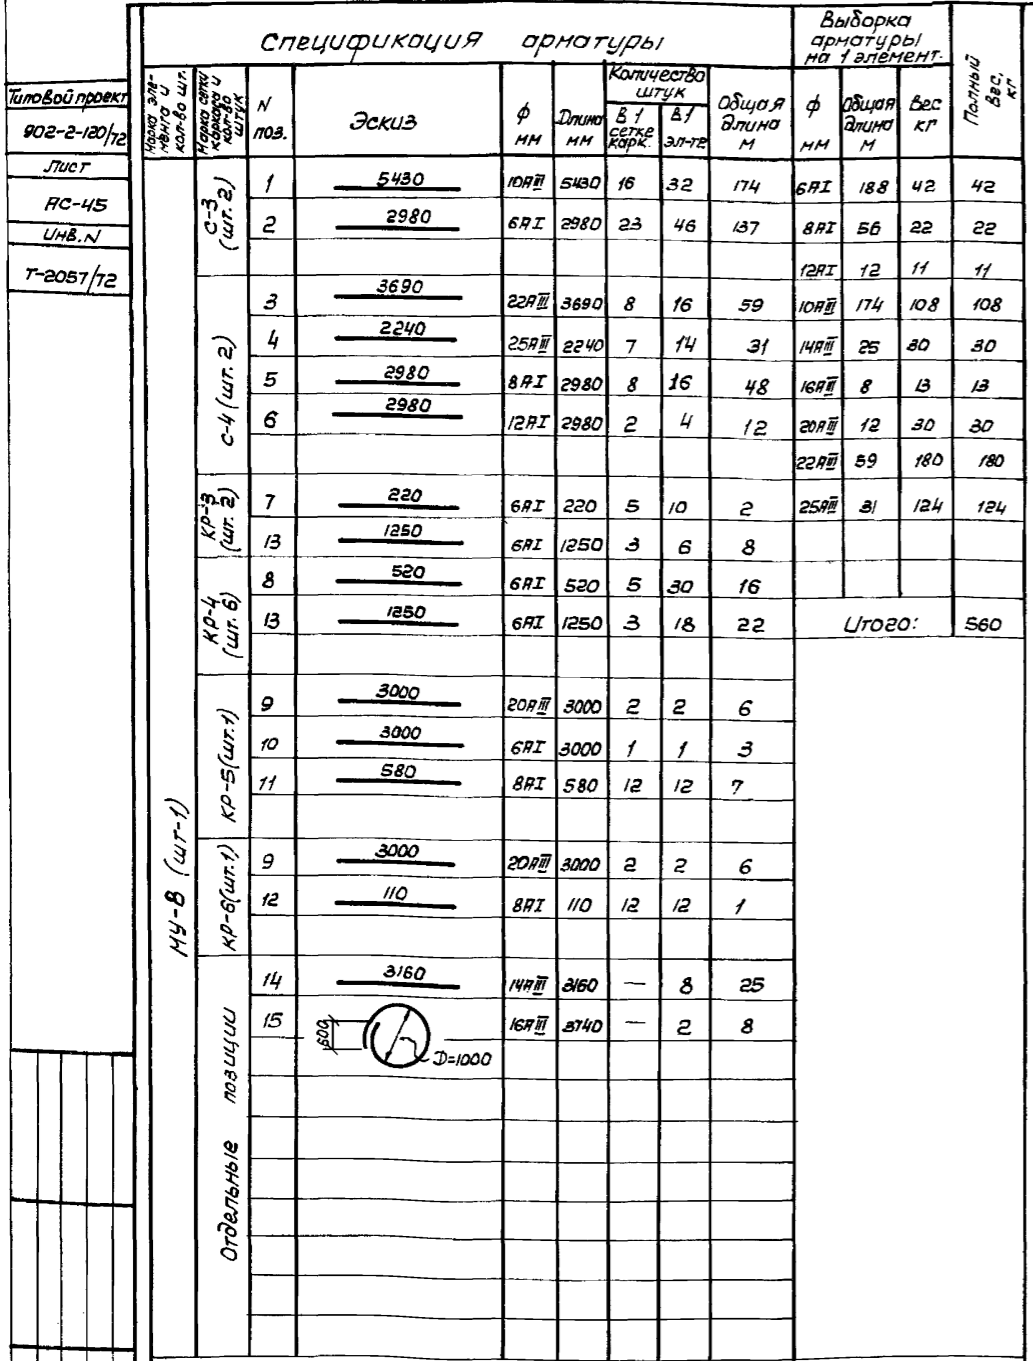 Типовой проект
902-2-120/72
Лист
АС-45
Инв.N
Т-2057/72
Спецификация арматуры
Выборка арматуры на 1 элемент.
Полный вес, кг
Марка эле-мента и кол-во шт.
Марка сетки каркаса и кол-во штук
N поз.
Эскиз
ф мм
Длина мм
Количество штук
В 1 сетке карк.
В 1 эл-те
Общая длина м
ф мм
Общая длина м
Вес кг
МУ-8 (шт-1)
С-3 (шт. 2)
1 5430 10АIII 5430 16 32 174 6АI 188 42 42
2 2980 6АI 2980 23 46 137 8АI 56 22 22
12АI 12 11 11
С-4 (шт. 2)
3 3690 22АIII 3690 8 16 59 10АIII 174 108 108
4 2240 25АIII 2240 7 14 31 14АIII 25 30 30
5 2980 8АI 2980 8 16 48 16АIII 8 13 13
6 2980 12АI 2980 2 4 12 20АIII 12 30 30
22АIII 59 180 180
КР-3 (шт. 2)
7 220 6АI 220 5 10 2 25АIII 31 124 124
13 1250 6АI 1250 3 6 8
КР-4 (шт. 6)
8 520 6АI 520 5 30 16
13 1250 6АI 1250 3 18 22 Итого: 560
КР-5 (шт.1)
9 3000 20АIII 3000 2 2 6
10 3000 6АI 3000 1 1 3
11 580 8АI 580 12 12 7
КР-6 (шт.1)
9 3000 20АIII 3000 2 2 6
12 110 8АI 110 12 12 1
Отдельные позиции
14 3160 14АIII 3160 — 8 25
15 600 D=1000 16АIII 3740 — 2 8